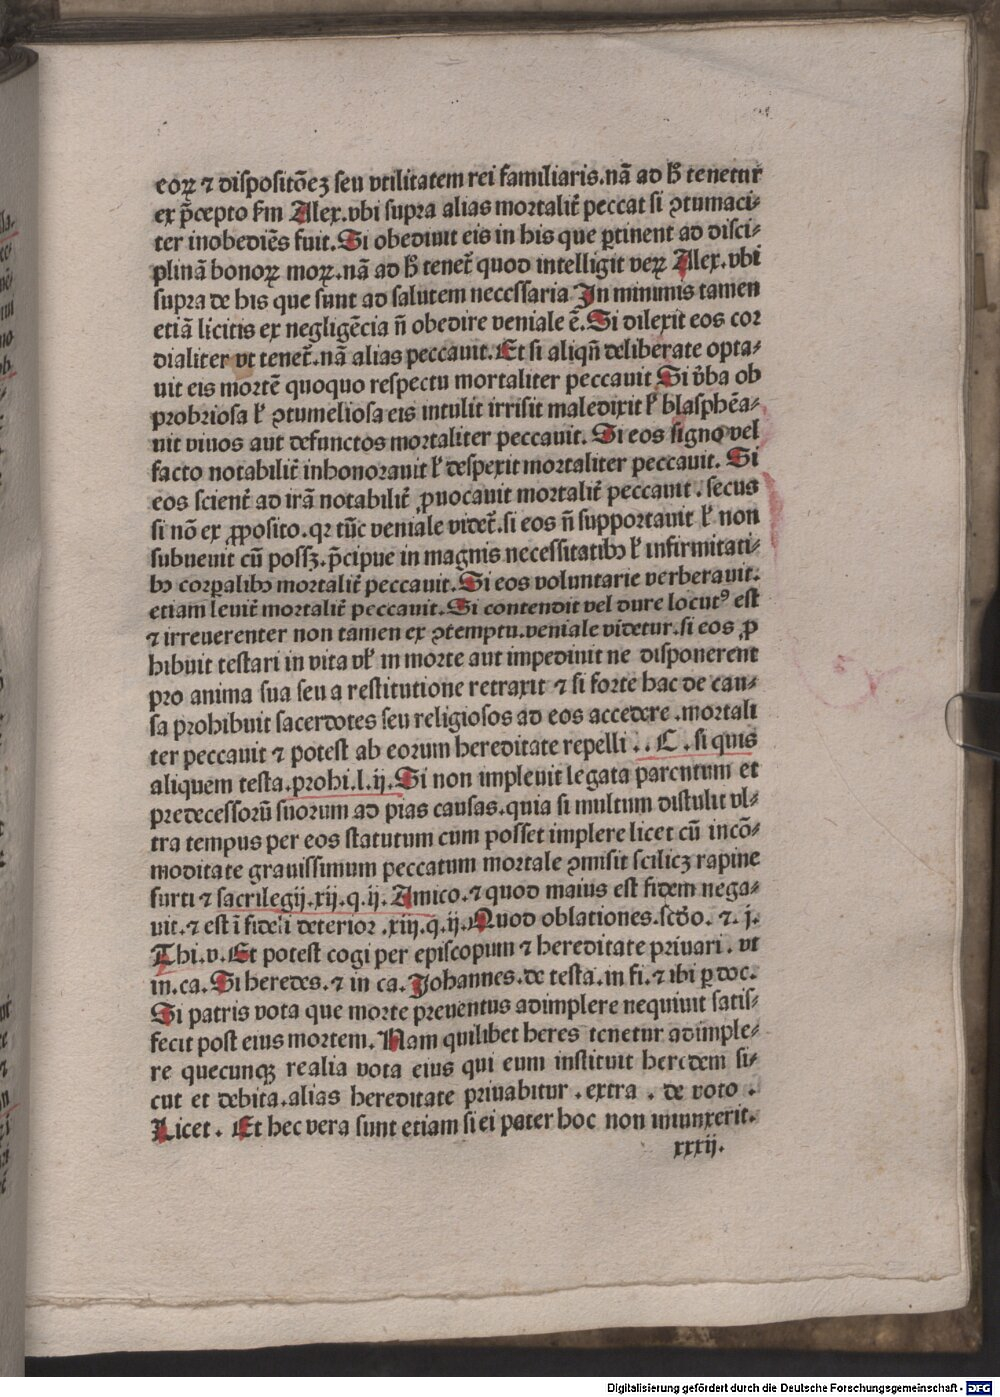 eoꝝ ⁊ dispositōeꝫ seu vtilitatem rei familiaris.nā ad hͦ tenetur
ex p̄cepto ẜm Alex.vbi supra alias mortalit̄ peccat si ꝯtumaci⸗
ter inobediēs fuit.Si obediuit eis in his que ꝑtinent ad disci⸗
plinā bonoꝝ moꝝ.nā ad hͦ tenet̄ quod intelligit veꝝ Alex.vbi
supra de his que sunt ad salutem necessaria In minimis tamen
etiā licitis ex negligēcia n̄ obedire veniale ē.Si dilexit eos cor
dialiter vt tenet̄.nā alias peccauit.Et si aliqn̄ deliberate opta⸗
uit eis mortē quoquo respectu mortaliter peccauit Si v̄ba ob
probriosa ł ꝯtumeliosa eis intulit irrisit maledixit ł blasphēa⸗
uit viuos aut defunctos mortaliter peccauit. Si eos signo vel
facto notabilit̄ inhonorauit ł despexit mortaliter peccauit. Si
eos scient̄ ad irā notabilit̄ ꝓuocauit mortalit̄ peccauit . secus
si nō ex ꝓposito.qr tūc veniale videt̄.si eos n̄ supportauit ł non
subuenit cū possꝫ.p̄cipue in magnis necessitatibꝰ ł infirmitati⸗
bꝰ corꝑalibꝰ mortalit̄ peccauit.Si eos voluntarie verberauit.
etiam leuit̄ mortalit̄ peccauit.Si contendit vel dure locutꝰ est
⁊ irreuerenter non tamen ex ꝯtemptu.veniale videtur.si eos ꝓ
hibuit testari in vita vł in morte aut impediuit ne disponerent
pro anima sua seu a restitutione retraxit ⁊ si forte hac de cau⸗
sa prohibuit sacerdotes seu religiosos ad eos accedere .mortali
ter peccauit ⁊ potest ab eorum hereditate repelli . . C . si quis
aliquem testa.prohi.l.ij.Si non impleuit legata parentum et
predecessorū suorum ad pias causas.quia si multum distulit vl⸗
tra tempus per eos statutum cum posset implere licet cū incō⸗
moditate grauissimum peccatum mortale ꝯmisit scilicꝫ rapine
furti ⁊ sacrilegij.xij.q.ij. Amico.⁊ quod maius est fidem nega⸗
uit.⁊ est ī fideli deterior .xiij.q.ij.Quod oblationes.sc̄do. ⁊. j.
Thi.v.Et potest cogi per episcopum ⁊ hereditate priuari . vt
in.ca.Si heredes.⁊ in ca.Johannes.de testa.in fi.⁊ ibi ꝑ doc.
Si patris vota que morte preuentus adimplere nequiuit satis⸗
fecit post eius mortem. Nam quilibet heres tenetur adimple⸗
re quecunqꝫ realia vota eius qui eum instituit heredem si⸗
cut et debita.alias hereditate priuabitur . extra . de voto .
Licet . Et hec vera sunt etiam si ei pater hoc non iniunxerit.
xxxij.
Digitalisierung gefördert durch die Deutsche Forschungsgemeinschaft - DFG